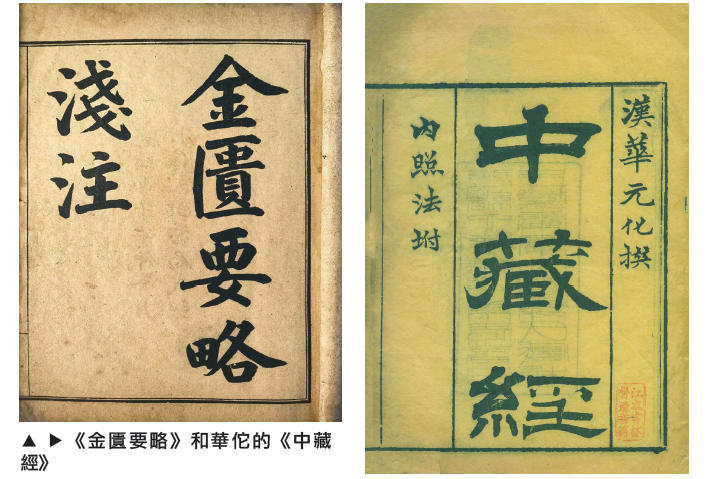 金匱要略
淺注
漢華元化撰
中藏經
內照法坿
▲ ▶《金匱要略》和華佗的《中藏
經》